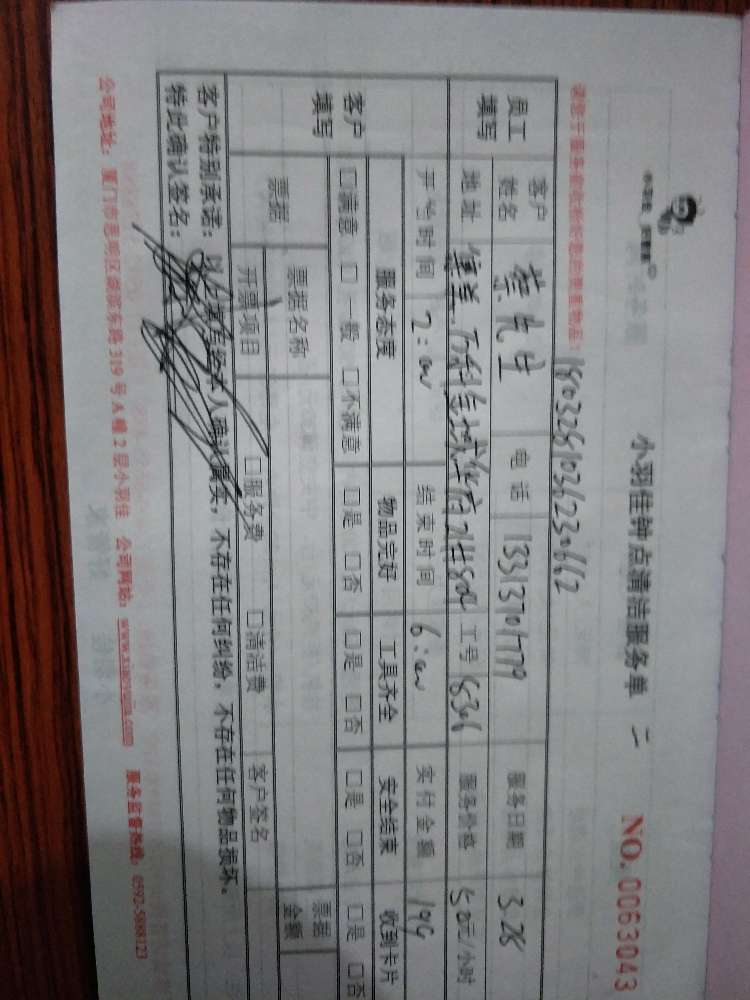 小羽佳钟点清洁服务单 二
NO. 0063043
180328103623066​2
员工填写
客户姓名 蔡先生 电话 服务日期 3.28
地址 万科金域华府 工号 服务价格 50元/小时
开始时间 2:00 结束时间 6:00 实付金额 199
客户填写
服务态度 物品完好 工具齐全 安全结束 收到卡片
□满意 □一般 □不满意 □是 □否 □是 □否 □是 □否 □是 □否
票据 票据名称 票据金额
开票项目 □服务费 □清洁费 客户签名
客户特别承诺：以上填写经本人确认属实，不存在任何纠纷，不存在任何物品损坏。
特此确认签名：
公司地址：厦门市思明区 东路319号A幢2层小羽佳 公司网站：www.xiaoyujia.com 服务监督热线：0592-5888123